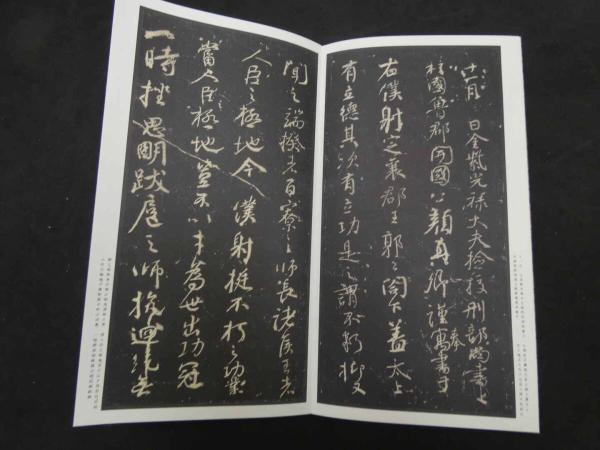 十一月日金紫光祿大夫檢校刑部尚書上
柱國魯郡開國公顏真卿謹奉寓書于
右僕射定襄郡王郭公閤下蓋太上
有立德其次有立功是之謂不朽抑又
聞之端揆者百寮之師長諸侯王者
人臣之極地今僕射挺不朽之功業
當人臣之極地豈不以才為世出功冠
一時挫思明跋扈之師抗迴紇無